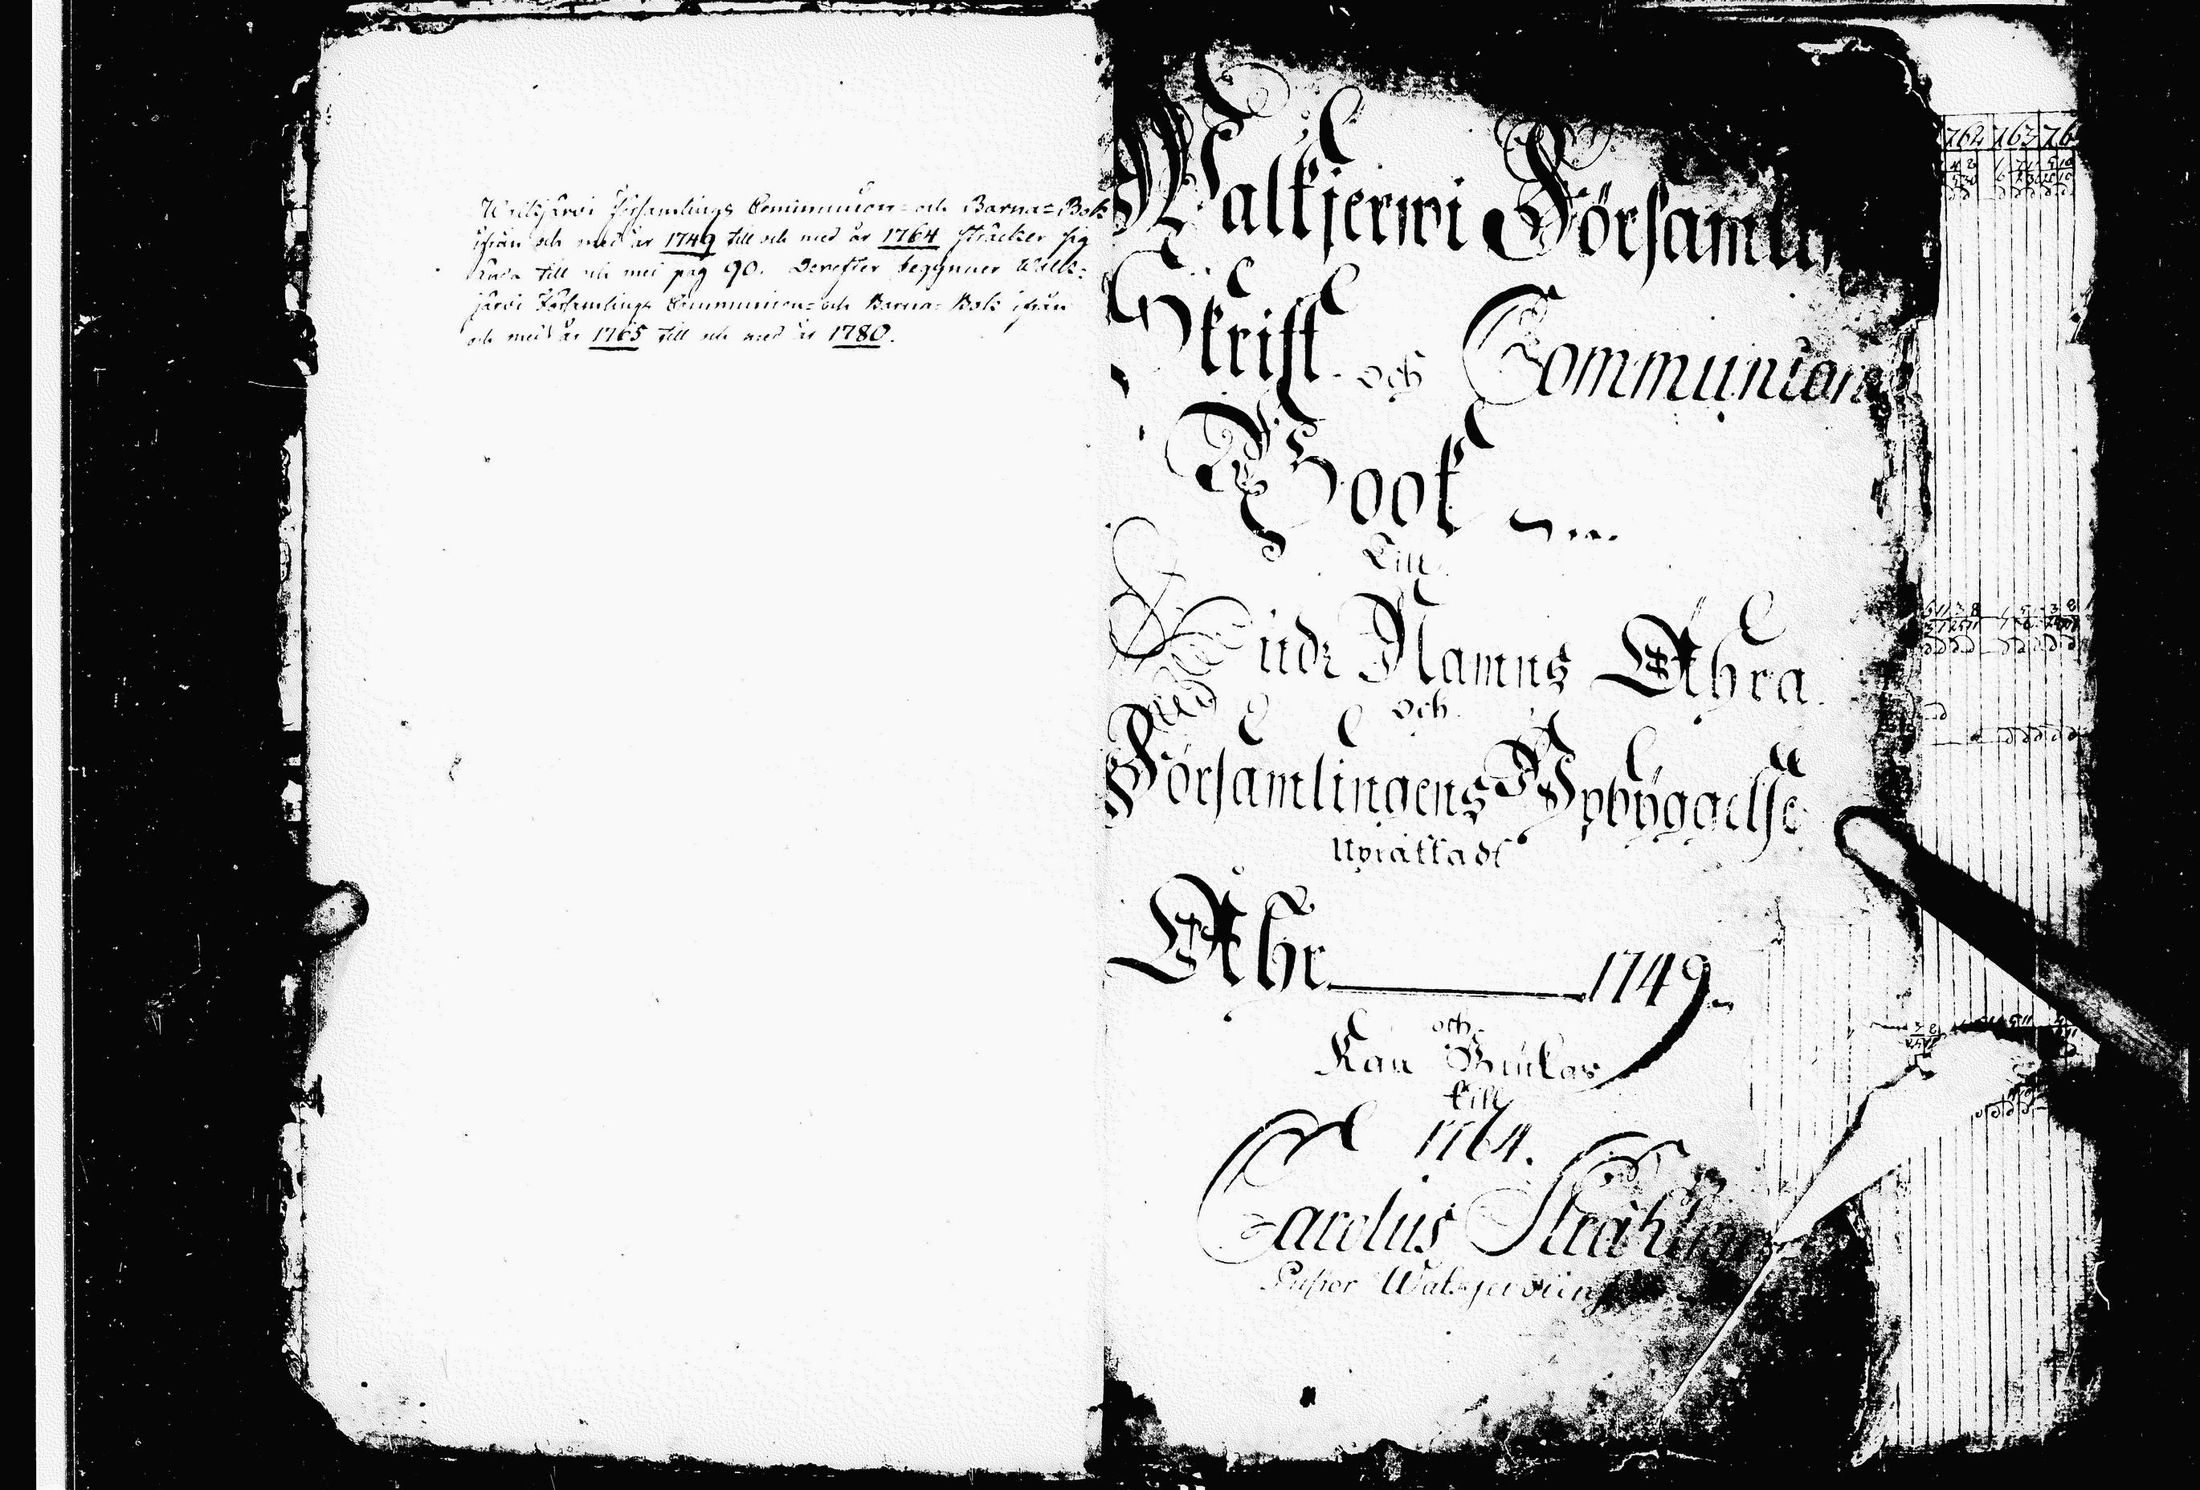 Walkjärvi Församlings Communion- och Barna-Bok
ifrån och med år 1749 till och med år 1764 sträcker sig
till och med pag 90. Derefter begynner Walk-
järvi Församlings Communion- och Barna-Bok ifrån
och med år 1765 till och med år 1780.
Walkjerwi Församlin
Skrift och Communion
Book
Till
Gudz Namns Ähra
och
Församlingens Upbyggelse
Uprättadt
Åhr 1749
och
Kan Brukas
till
1764.
Carolus Stråhlman
Pastor Walkjerviens
762 763 76